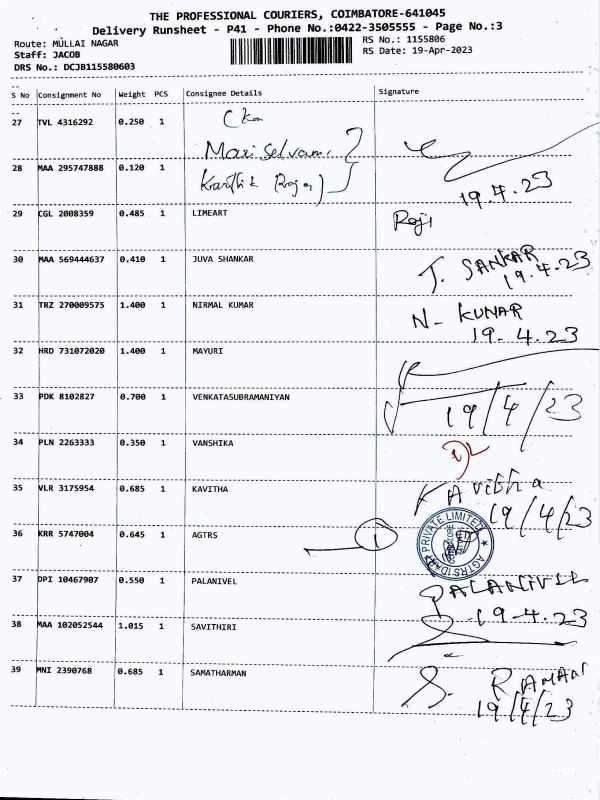 THE PROFESSIONAL COURIERS, COIMBATORE-641045
Delivery Runsheet - P41 - Phone No.:0422-3505555 - Page No.:3
Route: MULLAI NAGAR RS No.: 1155806
Staff: JACOB RS Date: 19-Apr-2023
DRS No.: DCJB115580603
S No Consignment No Weight PCS Consignee Details Signature
27 TVL 4316292 0.250 1
Mariselvam
28 MAA 295747888 0.120 1 Karthik (Roja) 19.4.23
29 CGL 2008359 0.485 1 LIMEART Roji
30 MAA 569444637 0.410 1 JUVA SHANKAR J. SANKAR
19.4.23
31 TRZ 270009575 1.400 1 NIRMAL KUMAR N- KUNAR
19.4.23
32 HRD 731072020 1.400 1 MAYURI
33 PDK 8102827 0.700 1 VENKATASUBRAMANIYAN 19/4/23
34 PLN 2263333 0.350 1 VANSHIKA
35 VLR 3175954 0.685 1 KAVITHA Kavitha
19/4/23
36 KRR 5747004 0.645 1 AGTRS 1 PRIVATE LIMITED
37 DPI 10467907 0.550 1 PALANIVEL PALANIVEL
19-4.23
38 MAA 102052544 1.015 1 SAVITHIRI
39 MNI 2390768 0.685 1 SAMATHARMAN S. RAMANI
19/4/23